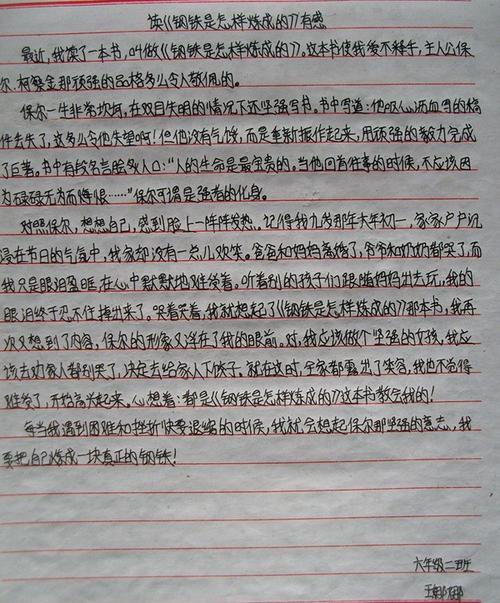 读《钢铁是怎样炼成的》有感
最近，我读了一本书，叫做《钢铁是怎样炼成的》。这本书使我爱不释手，主人公保
尔.柯察金那顽强的品格多么令人敬佩的。
保尔一生非常坎坷，在双目失明的情况下还坚强写书。书中写道：他呕心沥血写的稿
件丢失了，这多么令他失望啊！但他没有气馁，而是重新振作起来，用顽强的毅力完成
了巨著。书中有段名言脍炙人口：“人的生命是最宝贵的。当他回首往事的时候，不应该因
为碌碌无为而悔恨……”保尔可谓是强者的化身。
对照保尔，想想自己，感到脸上一阵阵发热。记得我九岁那年大年初一，家家户户沉
浸在节日的气氛中，我家却没有一点儿欢笑。爸爸和妈妈离婚了，爷爷和奶奶都哭了，而
我只是眼泪盈眶在心中默默地难受着。听着别的孩子们跟随妈妈出去玩，我的
眼泪终于忍不住掉出来了。哭着哭着，我就想起了《钢铁是怎样炼成的》那本书，我再
次又想到了内容，保尔的形象又浮在了我的眼前。对，我应该做个坚强的女孩，我应
该去劝家人都别哭了，决定去给家人下饺子。就在这时，全家都露出了笑容，我也不觉得
难受了，开始高兴起来。心想着：都是《钢铁是怎样炼成的》这本书教会我的！
每当我遇到困难和挫折快要退缩的时候，我就会想起保尔那坚强的意志，我
要把自己炼成一块真正的钢铁！
六年级二班
王娜娜